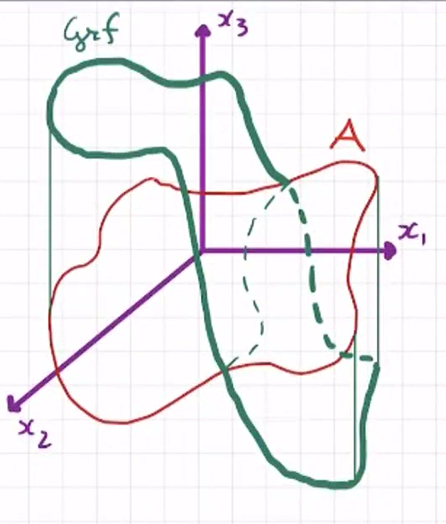 Grf
x₃
A
x₁
x₂